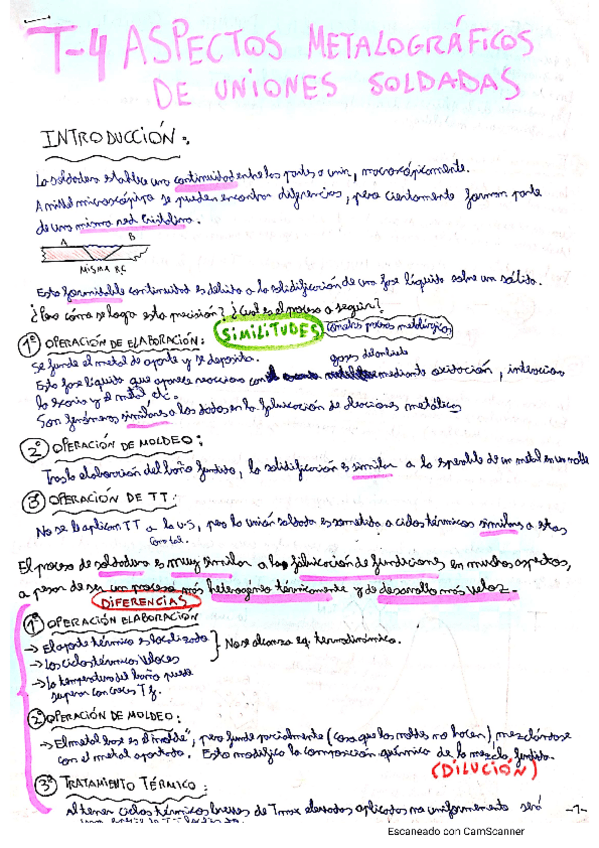 T-4 ASPECTOS METALOGRÁFICOS
DE UNIONES SOLDADAS
INTRODUCCIÓN:
La soldadura establece una continuidad entre las partes a unir, macroscópicamente.
A nivel microscópico se pueden encontrar diferencias, pero ciertamente forman parte
de una misma red cristalina.
A B
MISMA RC
Esta formidable continuidad es debido a la solidificación de una fase líquida sobre un sólido.
¿Pero cómo se logra esta precisión? ¿Cuál es el proceso a seguir?
SIMILITUDES con otros procesos metalúrgicos
1º OPERACIÓN DE ELABORACIÓN:
Se funde el metal de aporte y se deposita.
Esta fase líquida que aparece reacciona con gases mediante oxidación, interacción
la escoria y el metal etc.
Son fenómenos similares a los dados en la fabricación de aleaciones metálicas
2º OPERACIÓN DE MOLDEO:
Tras la elaboración del baño fundido, la solidificación es similar a la esperable de un metal en un molde
3º OPERACIÓN DE TT:
No se le aplican TT a la U.S, pero la unión soldada es sometida a ciclos térmicos similares a estos
como tal.
El proceso de soldadura es muy similar a la fabricación de fundiciones en muchos aspectos,
a pesar de ser un proceso más heterogéneo térmicamente y de desarrollo más veloz.
DIFERENCIAS
1º OPERACIÓN ELABORACIÓN
→ El aporte térmico es localizado
→ Los ciclos térmicos veloces
No se alcanza eq. termodinámico.
→ La temperatura del baño puede
superar con creces Tf.
2º OPERACIÓN DE MOLDEO:
→ El metal base es el "molde", pero funde parcialmente (cosa que los moldes no hacen) mezclándose
con el metal aportado. Esto modifica la composición química de la mezcla fundida.
(DILUCIÓN)
3º TRATAMIENTO TÉRMICO:
al tener ciclos térmicos breves de Tmax elevadas aplicados no uniformemente será
-1-
Escaneado con CamScanner